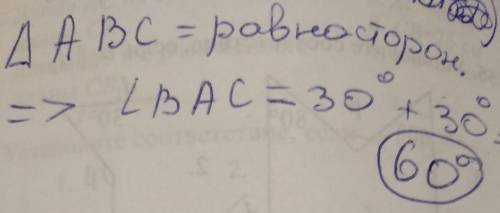 Δ ABC = равностoрон.
=> ∠BAC = 30° + 30° =
60°